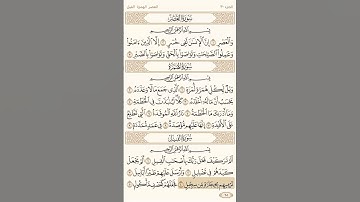 العصر الهمزة الفيل
الجزء ٣٠
سُورَةُ العَصْرِ
بِسْمِ اللَّهِ الرَّحْمَٰنِ الرَّحِيمِ
وَالْعَصْرِ ١ إِنَّ الْإِنسَانَ لَفِي خُسْرٍ ٢ إِلَّا الَّذِينَ ءَامَنُوا
وَعَمِلُوا الصَّالِحَاتِ وَتَوَاصَوْا بِالْحَقِّ وَتَوَاصَوْا بِالصَّبْرِ ٣
سُورَةُ الهُمَزَةِ
بِسْمِ اللَّهِ الرَّحْمَٰنِ الرَّحِيمِ
وَيْلٌ لِّكُلِّ هُمَزَةٍ لُّمَزَةٍ ١ الَّذِي جَمَعَ مَالًا وَعَدَّدَهُ ٢
يَحْسَبُ أَنَّ مَالَهُ أَخْلَدَهُ ٣ كَلَّا لَيُنبَذَنَّ فِي الْحُطَمَةِ ٤
وَمَا أَدْرَاكَ مَا الْحُطَمَةُ ٥ نَارُ اللَّهِ الْمُوقَدَةُ ٦ الَّتِي تَطَّلِعُ
عَلَى الْأَفْئِدَةِ ٧ إِنَّهَا عَلَيْهِم مُّؤْصَدَةٌ ٨ فِي عَمَدٍ مُّمَدَّدَةٍ ٩
سُورَةُ الفِيلِ
بِسْمِ اللَّهِ الرَّحْمَٰنِ الرَّحِيمِ
أَلَمْ تَرَ كَيْفَ فَعَلَ رَبُّكَ بِأَصْحَابِ الْفِيلِ ١ أَلَمْ يَجْعَلْ
كَيْدَهُمْ فِي تَضْلِيلٍ ٢ وَأَرْسَلَ عَلَيْهِمْ طَيْرًا أَبَابِيلَ ٣
تَرْمِيهِم بِحِجَارَةٍ مِّن سِجِّيلٍ ٤ فَجَعَلَهُمْ كَعَصْفٍ مَّأْكُولٍ ٥